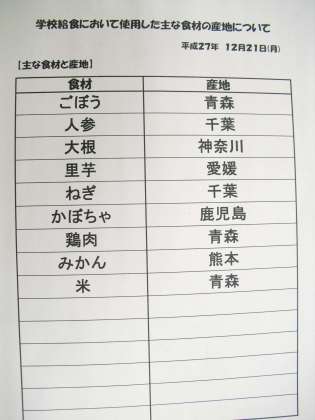 学校給食において使用した主な食材の産地について
平成27年 12月21日(月)
【主な食材と産地】
食材 産地
ごぼう 青森
人参 千葉
大根 神奈川
里芋 愛媛
ねぎ 千葉
かぼちゃ 鹿児島
鶏肉 青森
みかん 熊本
米 青森